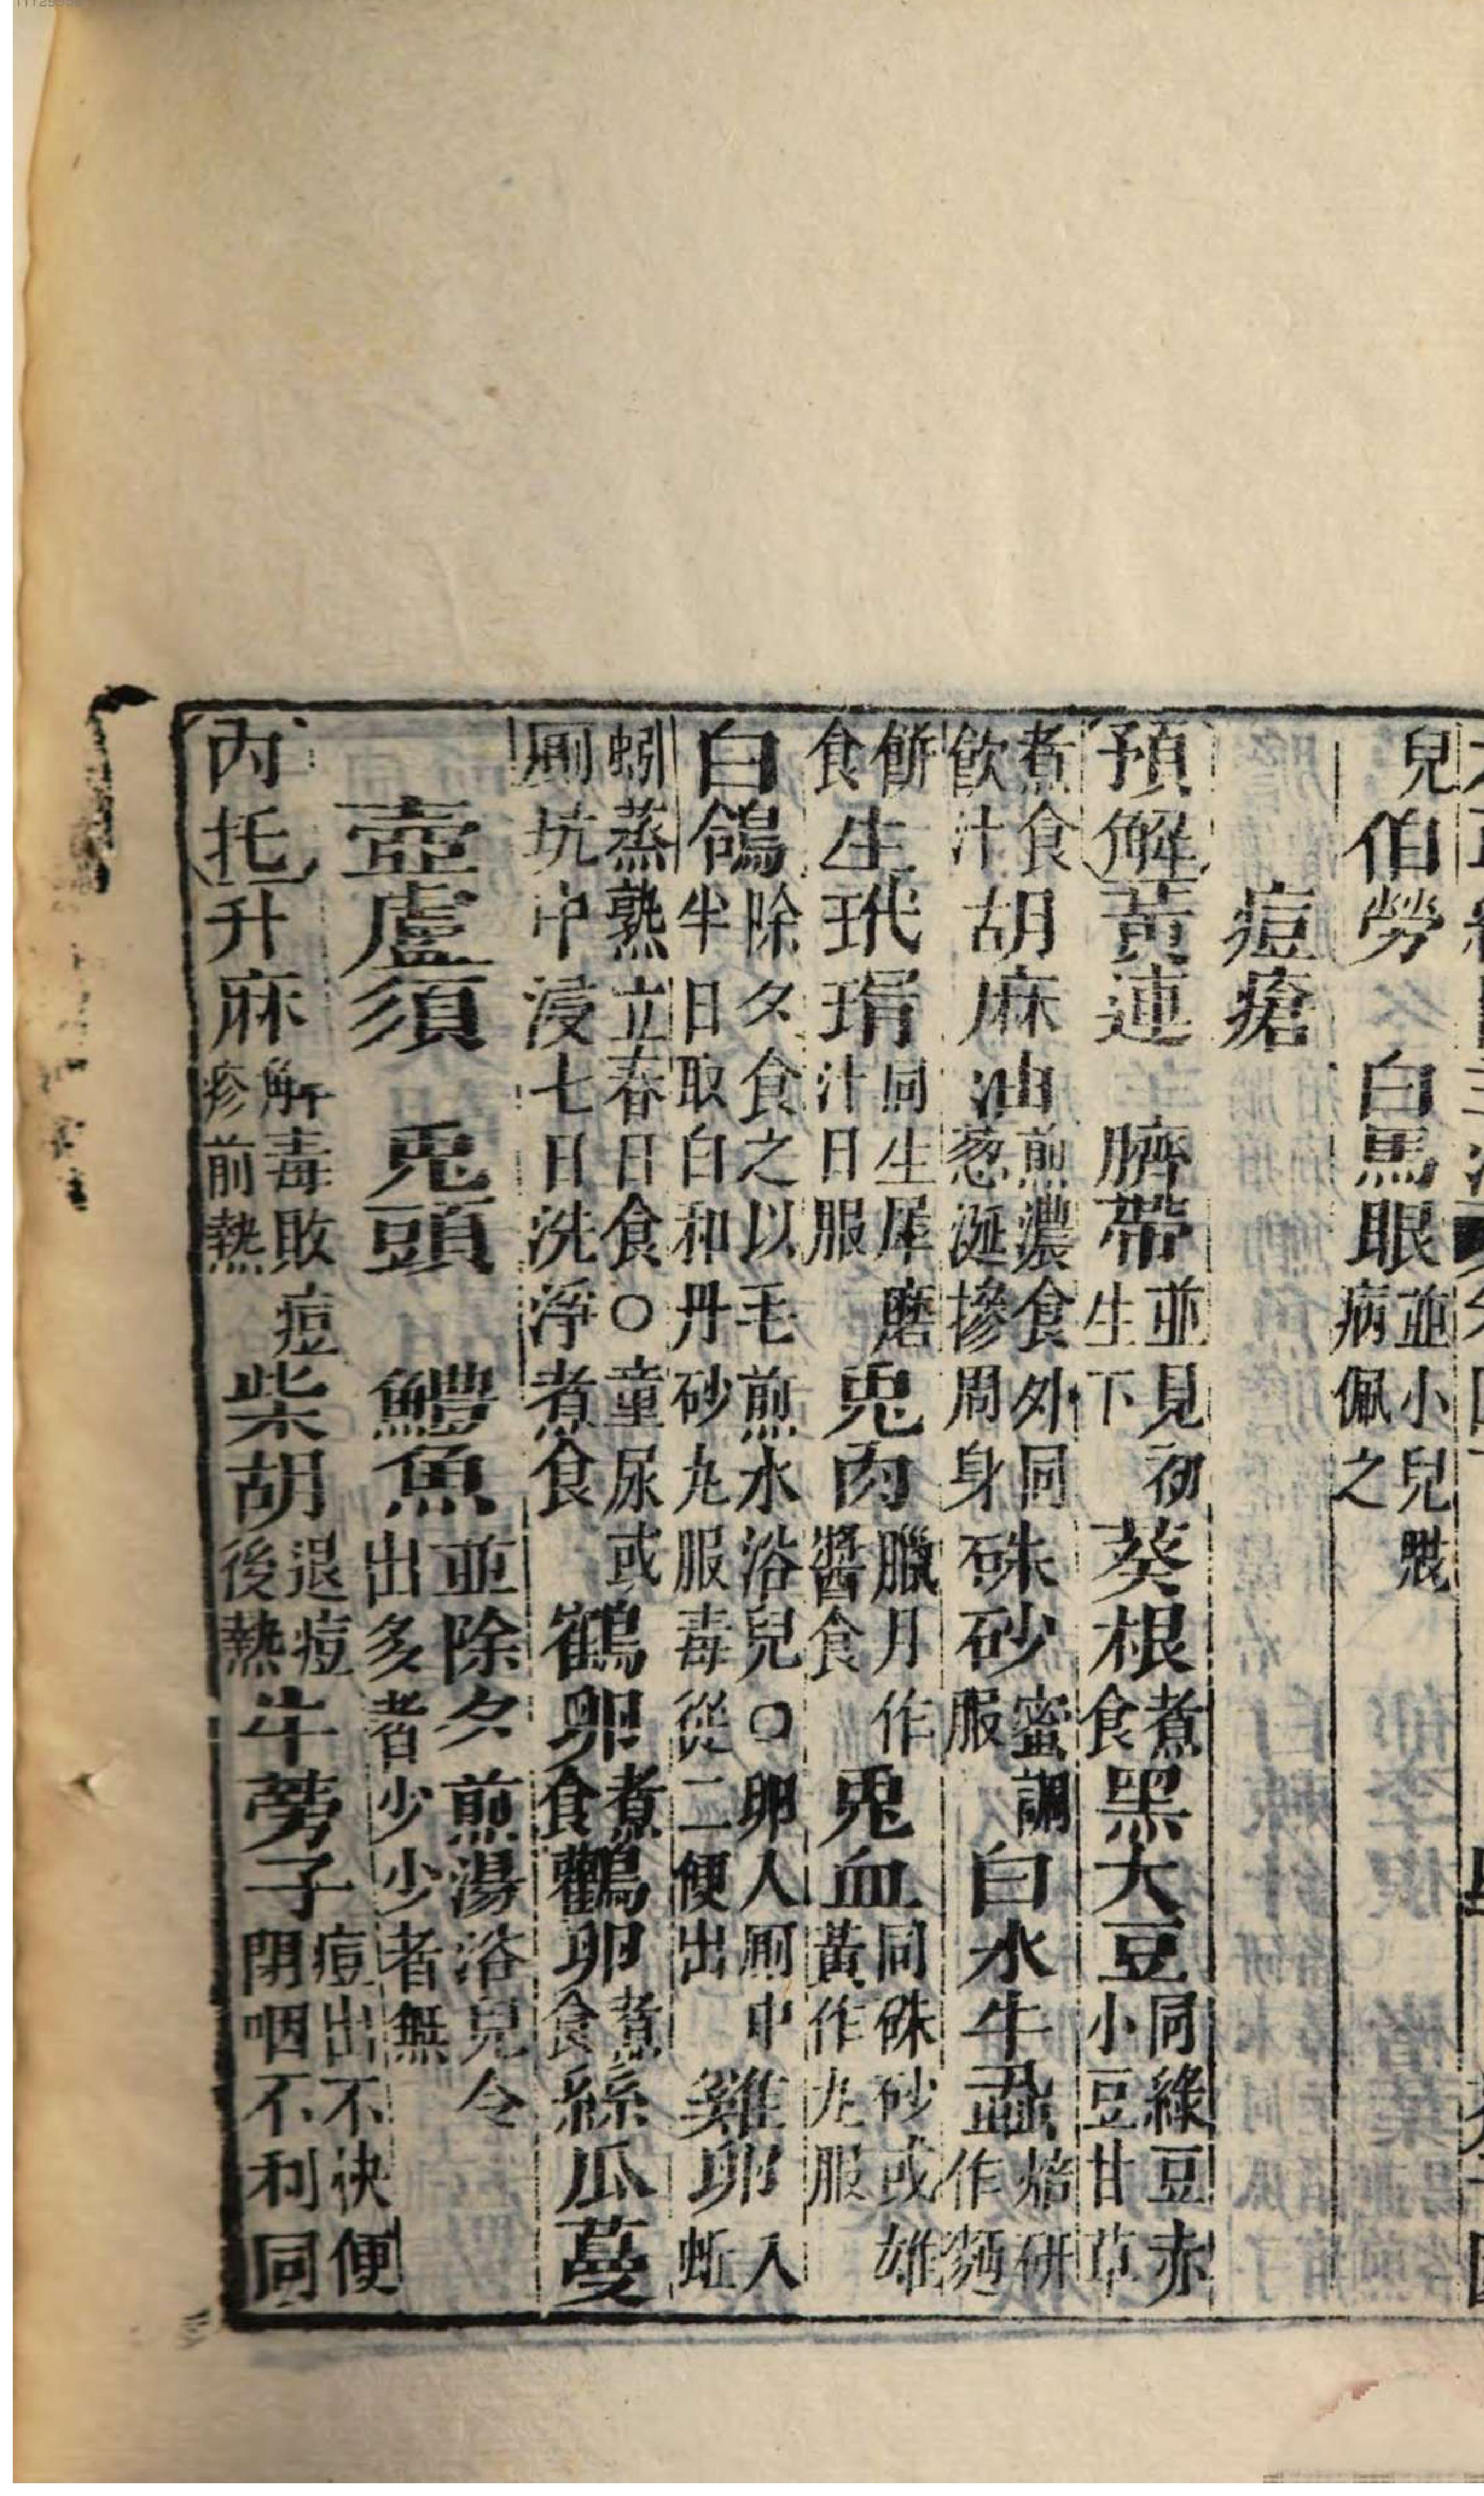 兒伯勞 白馬眼並小兒鬾病佩之
痘瘡
預解黃連 臍帶並見初生下 葵根煮食黑大豆同綠豆赤小豆甘草
煮食飲汁胡麻油煎濃食外同葱涎摻周身硃砂蜜調服 白水牛蝨焙研作麪
餅食生玳瑁同生犀磨汁日服 兎肉臘月作醬食 兎血同硃砂或雄黃作丸服
白鴿除夕食之以毛煎水浴兒○卵入厠中半日取白和丹砂丸服毒從二便出 雞卵入蚯
蚓蒸熟立春日食○童尿或厠坑中浸七日洗淨煮食 鶴卵煮食鸛卵煮食絲瓜蔓
壺盧須 兎頭 鱧魚並除夕煎湯浴兒令出多者少少者無
內托升麻解毒敗痘疹前熱 柴胡退痘後熱牛蒡子痘出不快便閉咽不利同